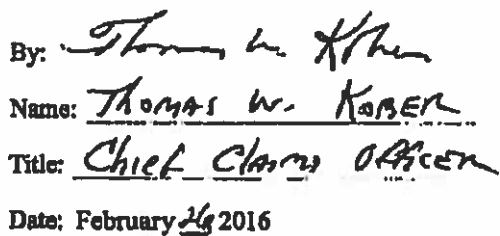 By: Thomas W. Kober
Name: THOMAS W. KOBER
Title: Chief Claims Officer
Date: February 26 2016